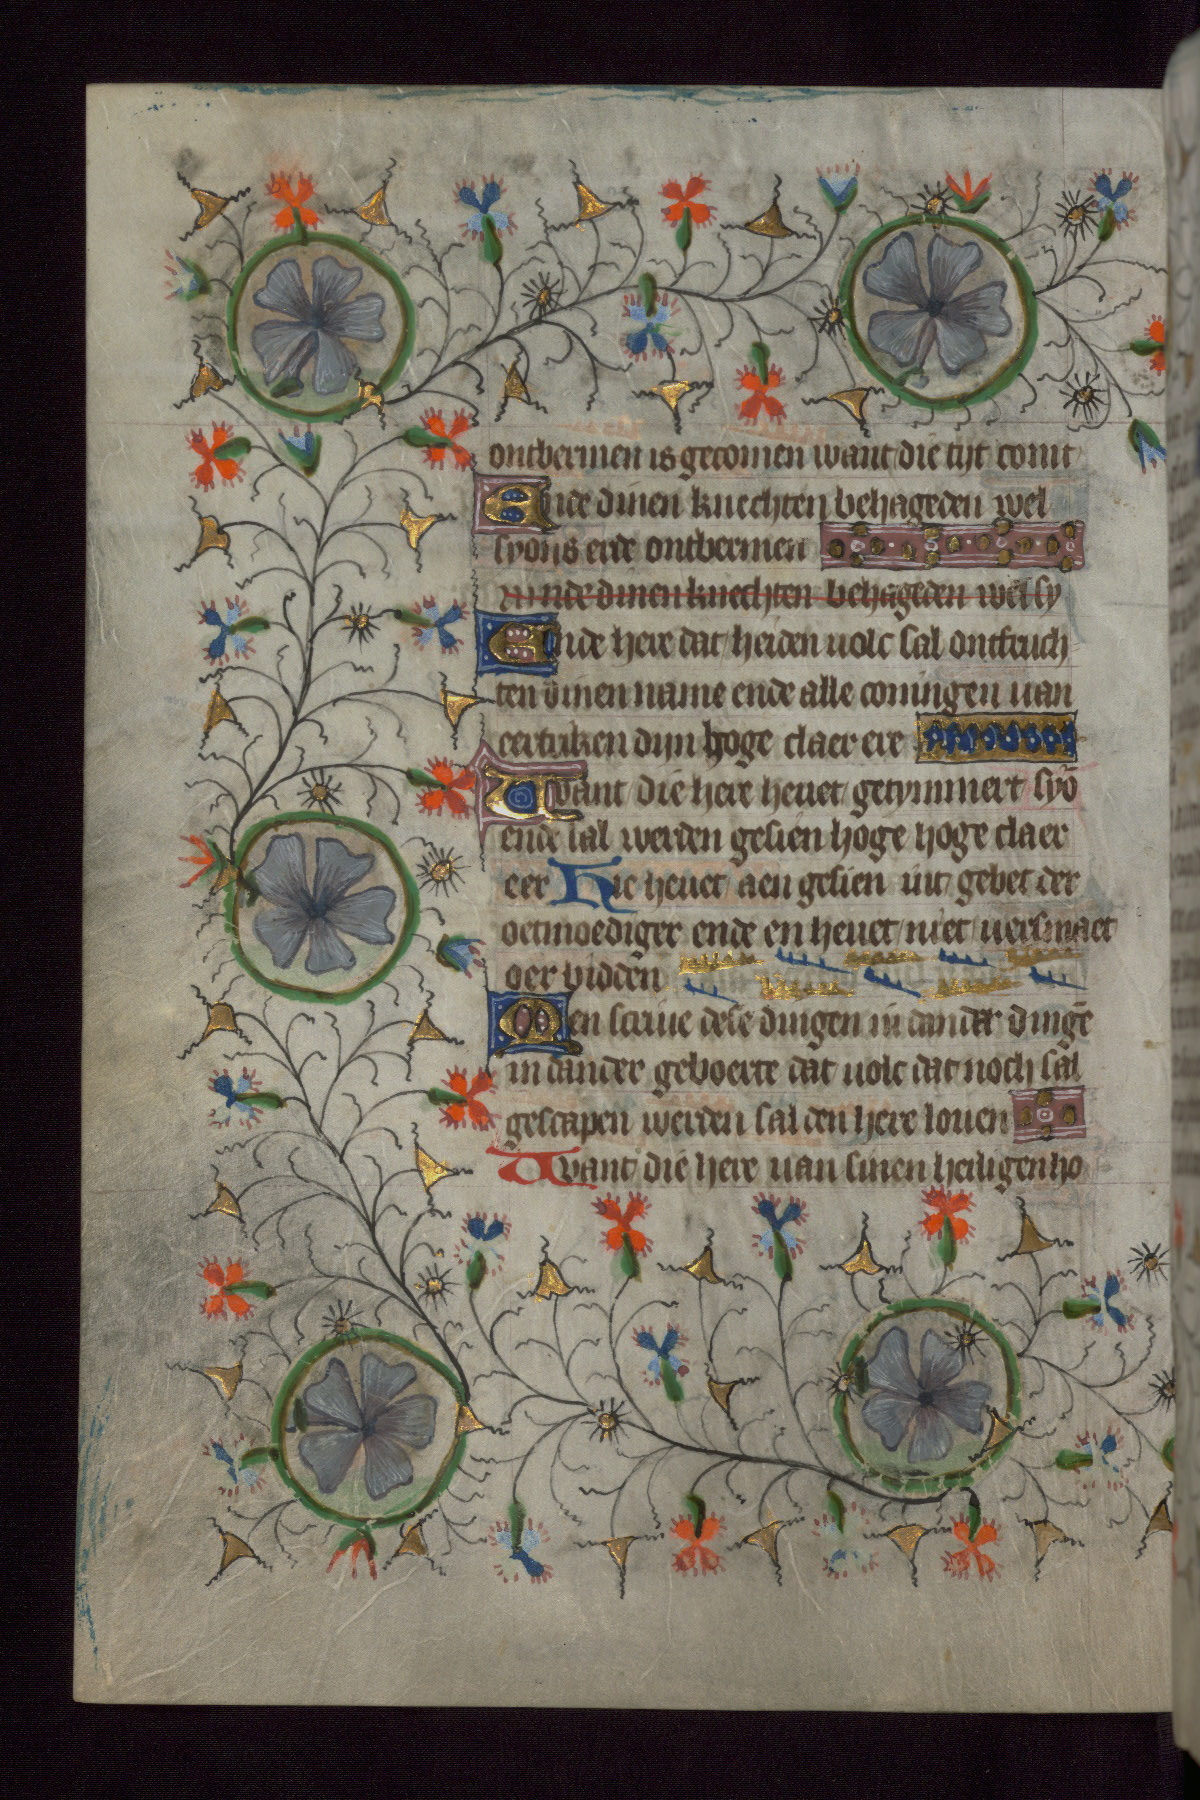 ontbermen is gecomen want die tijt comt
Ende dinen knechten behageden wel
syons erde ontbermen
nde dinen knechten behageden wel sy
Ende here dat heiden volc sal ontfruch
ten dinen name ende alle coningen van
eertriken dijn hoge claer ere
Want die here hevet getymmert syō
ende sal werden gesien hoge hoge claer
eer Hie hevet aen gesien int gebet der
oetmoediger ende en hevet niet versmaet
oer bidden
Men scrive dese dingen in dander dingē
in dander geboerte dat volc dat noch sal
gescapen werden sal den here loven
Want die here van sinen heiligen ho